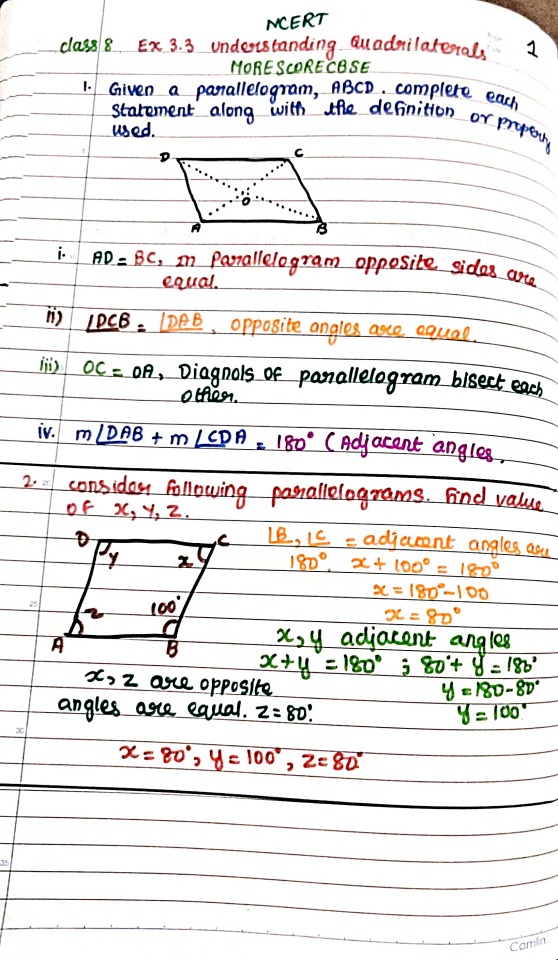 NCERT
class 8 Ex 3.3 understanding Quadrilaterals 1
MORESCORECBSE
1. Given a parallelogram, ABCD. complete each
Statement along with the definition or property
used.
D C
O
A B
i. AD = BC, In parallelogram opposite sides are
equal.
ii) ∠DCB = ∠DAB, opposite angles are equal.
iii) OC = OA, Diagnols of parallelogram bisect each
other.
iv. m∠DAB + m∠CDA = 180° (Adjacent angles.
2. consider following parallelograms. Find value
of x, y, z.
D C
y x
z 100°
A B
∠B, ∠C = adjacent angles are
180°. x + 100° = 180°
x = 180° - 100
x = 80°
x, y adjacent angles
x + y = 180° ; 80° + y = 180°
y = 180 - 80°
y = 100°
x, z are opposite
angles are equal. z = 80°.
x = 80°, y = 100°, z = 80°
25
30
35
Camlin